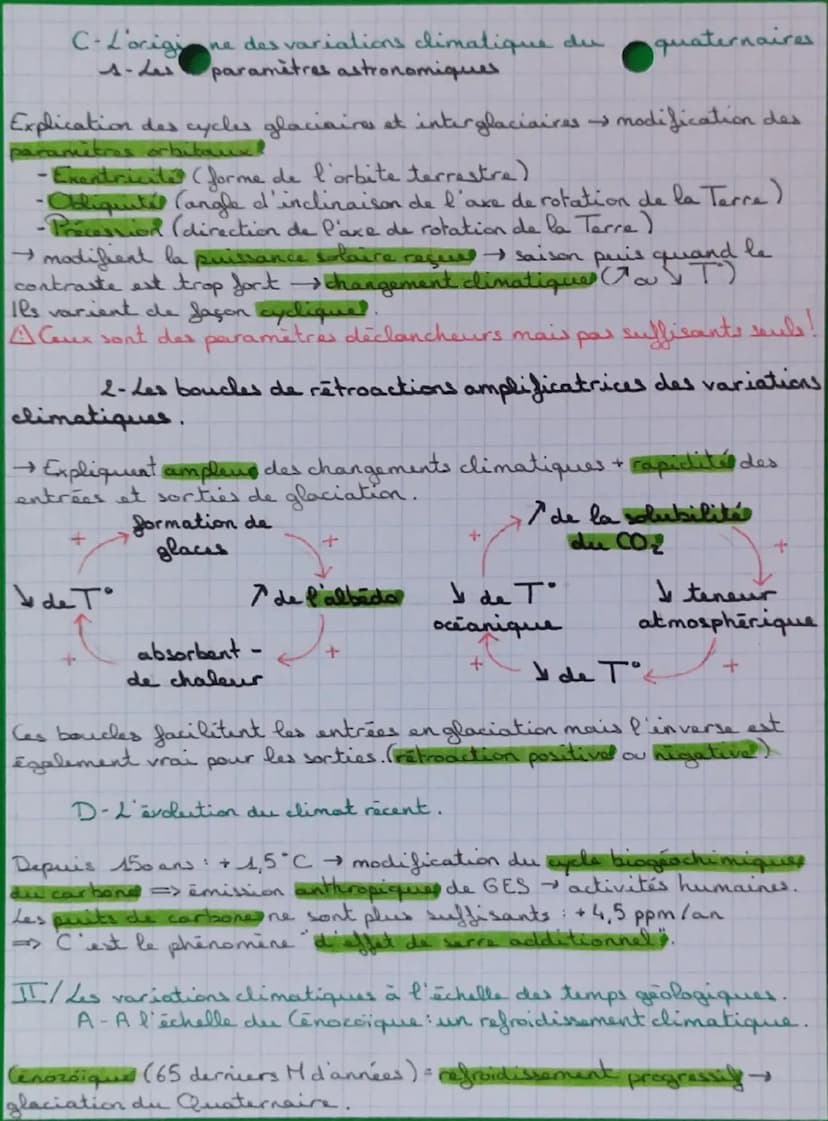 C-L'origine des variations climatique du quaternaires
1-Les paramètres astronomiques
Explication des cycles glaciaires et interglaciaires → modification des
paramètres orbitaux!
- Exentricité (forme de l'orbite terrestre)
- Obliquité (angle d'inclinaison de l'axe de rotation de la Terre)
- Précession (direction de l'axe de rotation de la Terre)
→ modifient la puissance solaire reçue → saison puis quand le
contraste est trop fort → changement climatique (↗ ou ↘ T°)
Ils varient de façon cyclique!
⚠ Ceux sont des paramètres déclancheurs mais pas suffisants seuls!
2-Les boucles de rétroactions amplificatrices des variations
climatiques.
→ Expliquent ampleur des changements climatiques + rapidité des
entrées et sorties de glaciation.
formation de
glaces
↗ de l'albédo
absorbent -
de chaleur
↘ de T°
+
+
+
+
↗ de la solubilité
du CO2
↘ teneur
atmosphérique
↘ de T°
↘ de T°
océanique
+
+
+
+
Ces boucles facilitent les entrées en glaciation mais l'inverse est
également vrai pour les sorties. (rétroaction positive ou négative)
D-L'évolution du climat récent.
Depuis 150 ans : + 1,5°C → modification du cycle biogéochimique
du carbone => émission anthropique de GES → activités humaines.
Les puits de carbone ne sont plus suffisants : + 4,5 ppm/an
=> C'est le phénomène "d'effet de serre additionnel".
II/Les variations climatiques à l'échelle des temps géologiques.
A-A l'échelle du Cénozoïque : un refroidissement climatique.
Cénozoïque (65 derniers M d'années) = refroidissement progressif →
glaciation du Quaternaire.